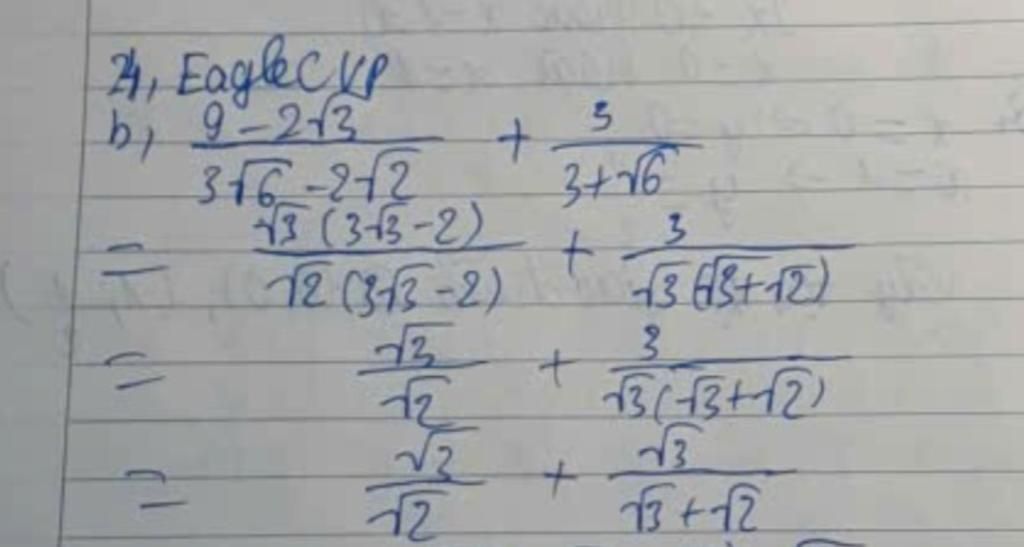 24, EagleCVP
b, (9-2√3)/(3√6-2√2) + 3/(3+√6)
= √3(3√3-2)/√2(3√3-2) + 3/√3(√3+√2)
= √3/√2 + 3/√3(√3+√2)
= √3/√2 + √3/(√3+√2)